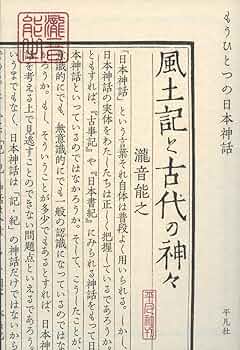 もうひとつの日本神話
風土記と古代の神々
瀧音能之
平凡社
「日本神話」という言葉それ自体は普段よく用いられる。しかし、
日本神話の実体をわたしたちは正しく把握しているであろうか。
ともすれば、『古事記』や『日本書紀』にみられる神話をもって日
本神話といっているのではなかろうか。そして、こうしたことが、
識的にでも、無意識的にでも一般の認識になっているのではな
ろうか。もし、そういうことが多少でもあるとすれば、日本神
を考える上で見逃すことのできない問題点といえるであろう。
いうまでもなく、日本神話は「記・紀」の神話だけではないから